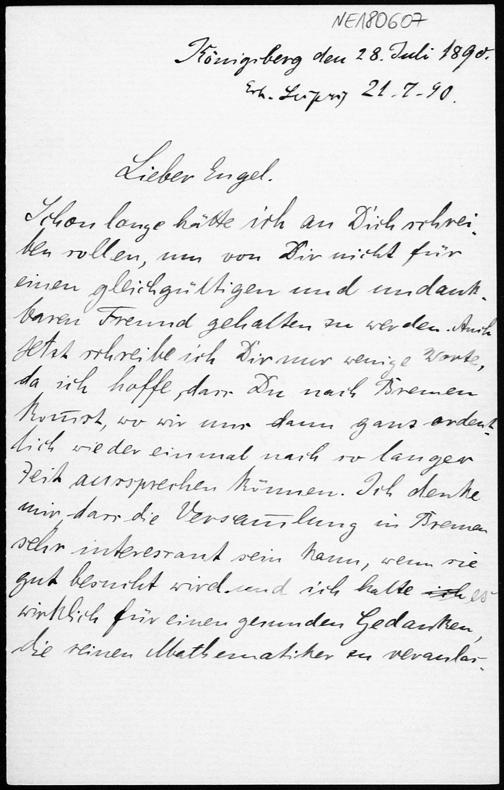 NE180607
Königsberg den 28. Juli 1890.
Erh. Leipzig 21-7-90.
Lieber Engel.
Schon lange hätte ich an Dich schrei-
ben sollen, um von Dir nicht für
einen gleichgültigen und undank-
baren Freund gehalten zu werden. Auch
jetzt schreibe ich Dir nur wenige Worte,
da ich hoffe, dass Du nach Bremen
kom̄st, wo wir uns dann ganz ordent-
lich wieder einmal nach so langer
Zeit aussprechen können. Ich denke
mir, dass die Versam̄lung in Bremen
sehr interessant sein kann, wenn sie
gut besucht wird und ich halte ich es
wirklich für einen gesunden Gedanken,
die reinen Mathematiker zu veranlas-